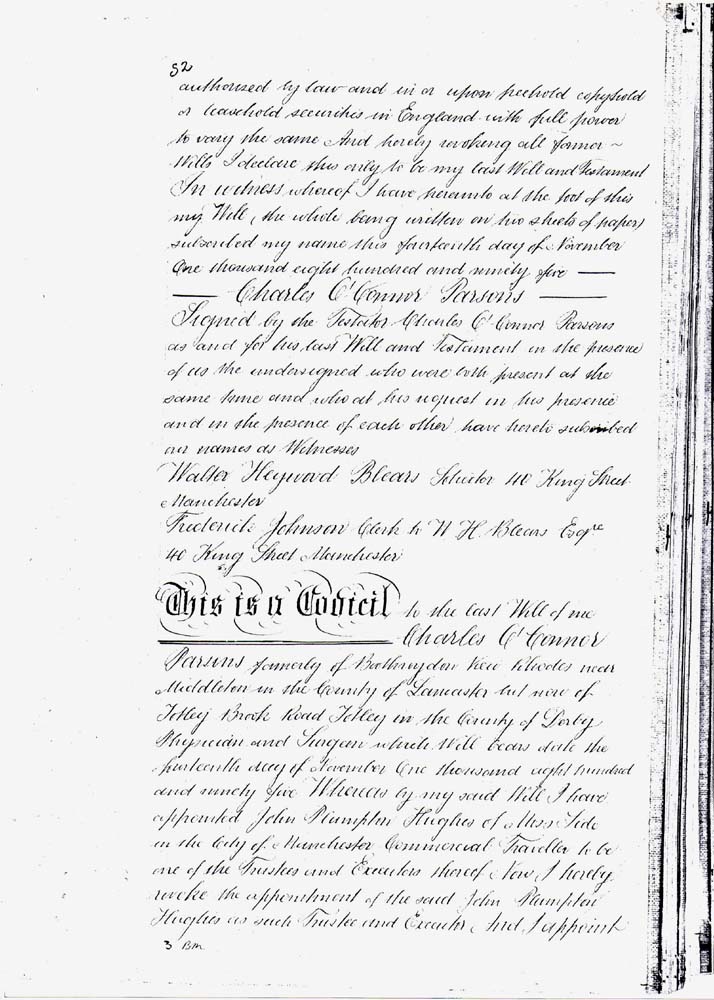 S2
authorized by law and in or upon freehold copyhold
or leasehold securities in England with full power
to vary the same And hereby revoking all former ~
Wills I declare this only to be my last Will and Testament
In witness whereof I have hereunto at the foot of this
my Will (the whole being written on two sheets of paper)
subscribed my name this fourteenth day of November
One thousand eight hundred and ninety five —
— Charles O'Connor Parsons —
Signed by the Testator Charles O'Connor Parsons
as and for his last Will and Testament in the presence
of us the undersigned who were both present at the
same time and who at his request in his presence
and in the presence of each other have hereto subscribed
our names as Witnesses
Walter Heywood Blears Solicitor 40 King Street
Manchester
Frederick Johnson Clerk to W H Blears Esqre
40 King Street Manchester
This is a Codicil to the last Will of me
Charles O'Connor
Parsons formerly of View Rhodes near
Middleton in the County of Lancaster but now of
Totley Brook Road Totley in the County of Derby
Physician and Surgeon which Will bears date the
fourteenth day of November One thousand eight hundred
and ninety five Whereas by my said Will I have
appointed John Plumpton Hughes of Moss Side
in the City of Manchester Commercial Traveller to be
one of the Trustees and Executors thereof Now I hereby
revoke the appointment of the said John Plumpton
Hughes as such Trustee and Executor And I appoint
3 BM